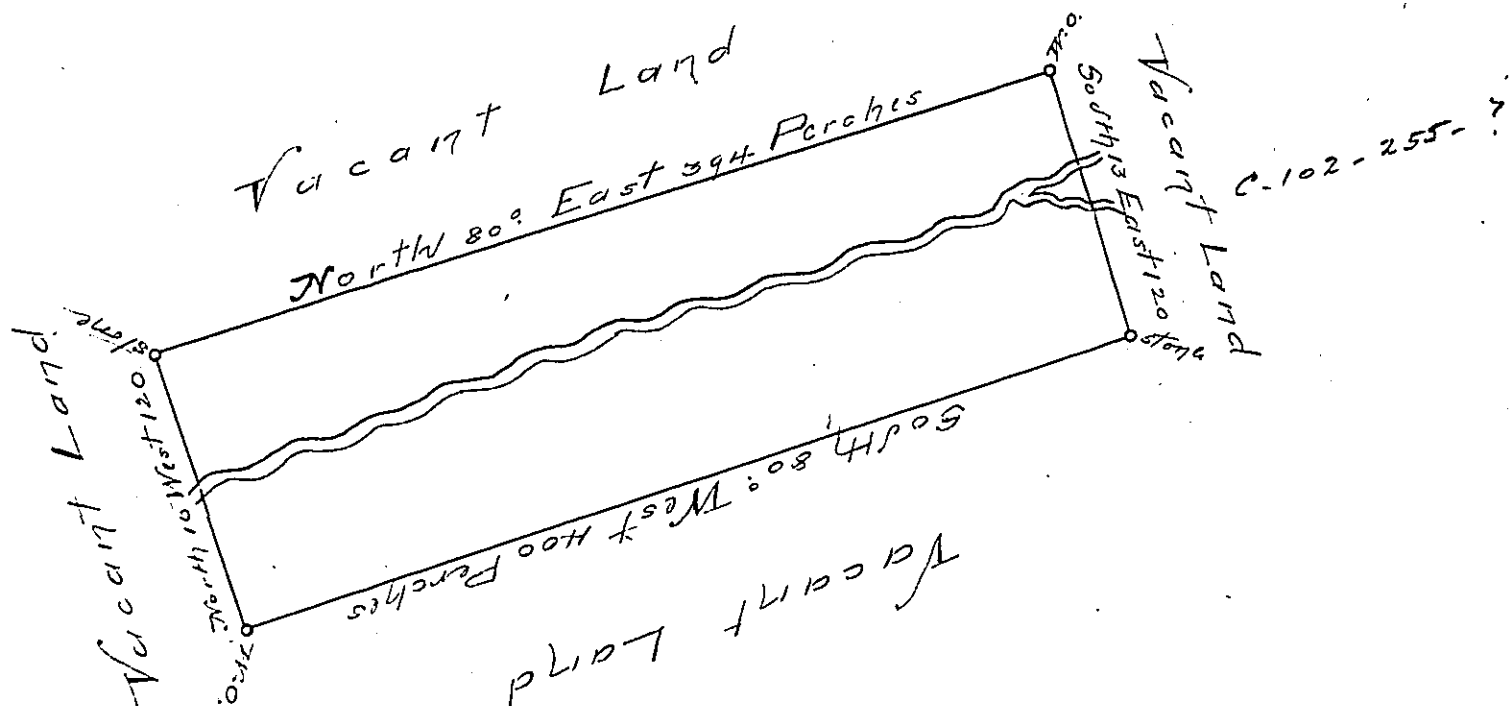 Vacant Land
W.O.
North 80° East 394 Perches
South 13 East 120
Vacant Land
C-102-255-?
Stone
Stone
South 80° West 400 Perches
Vacant Land
North 10 West 120
W.O.
Vacant Land